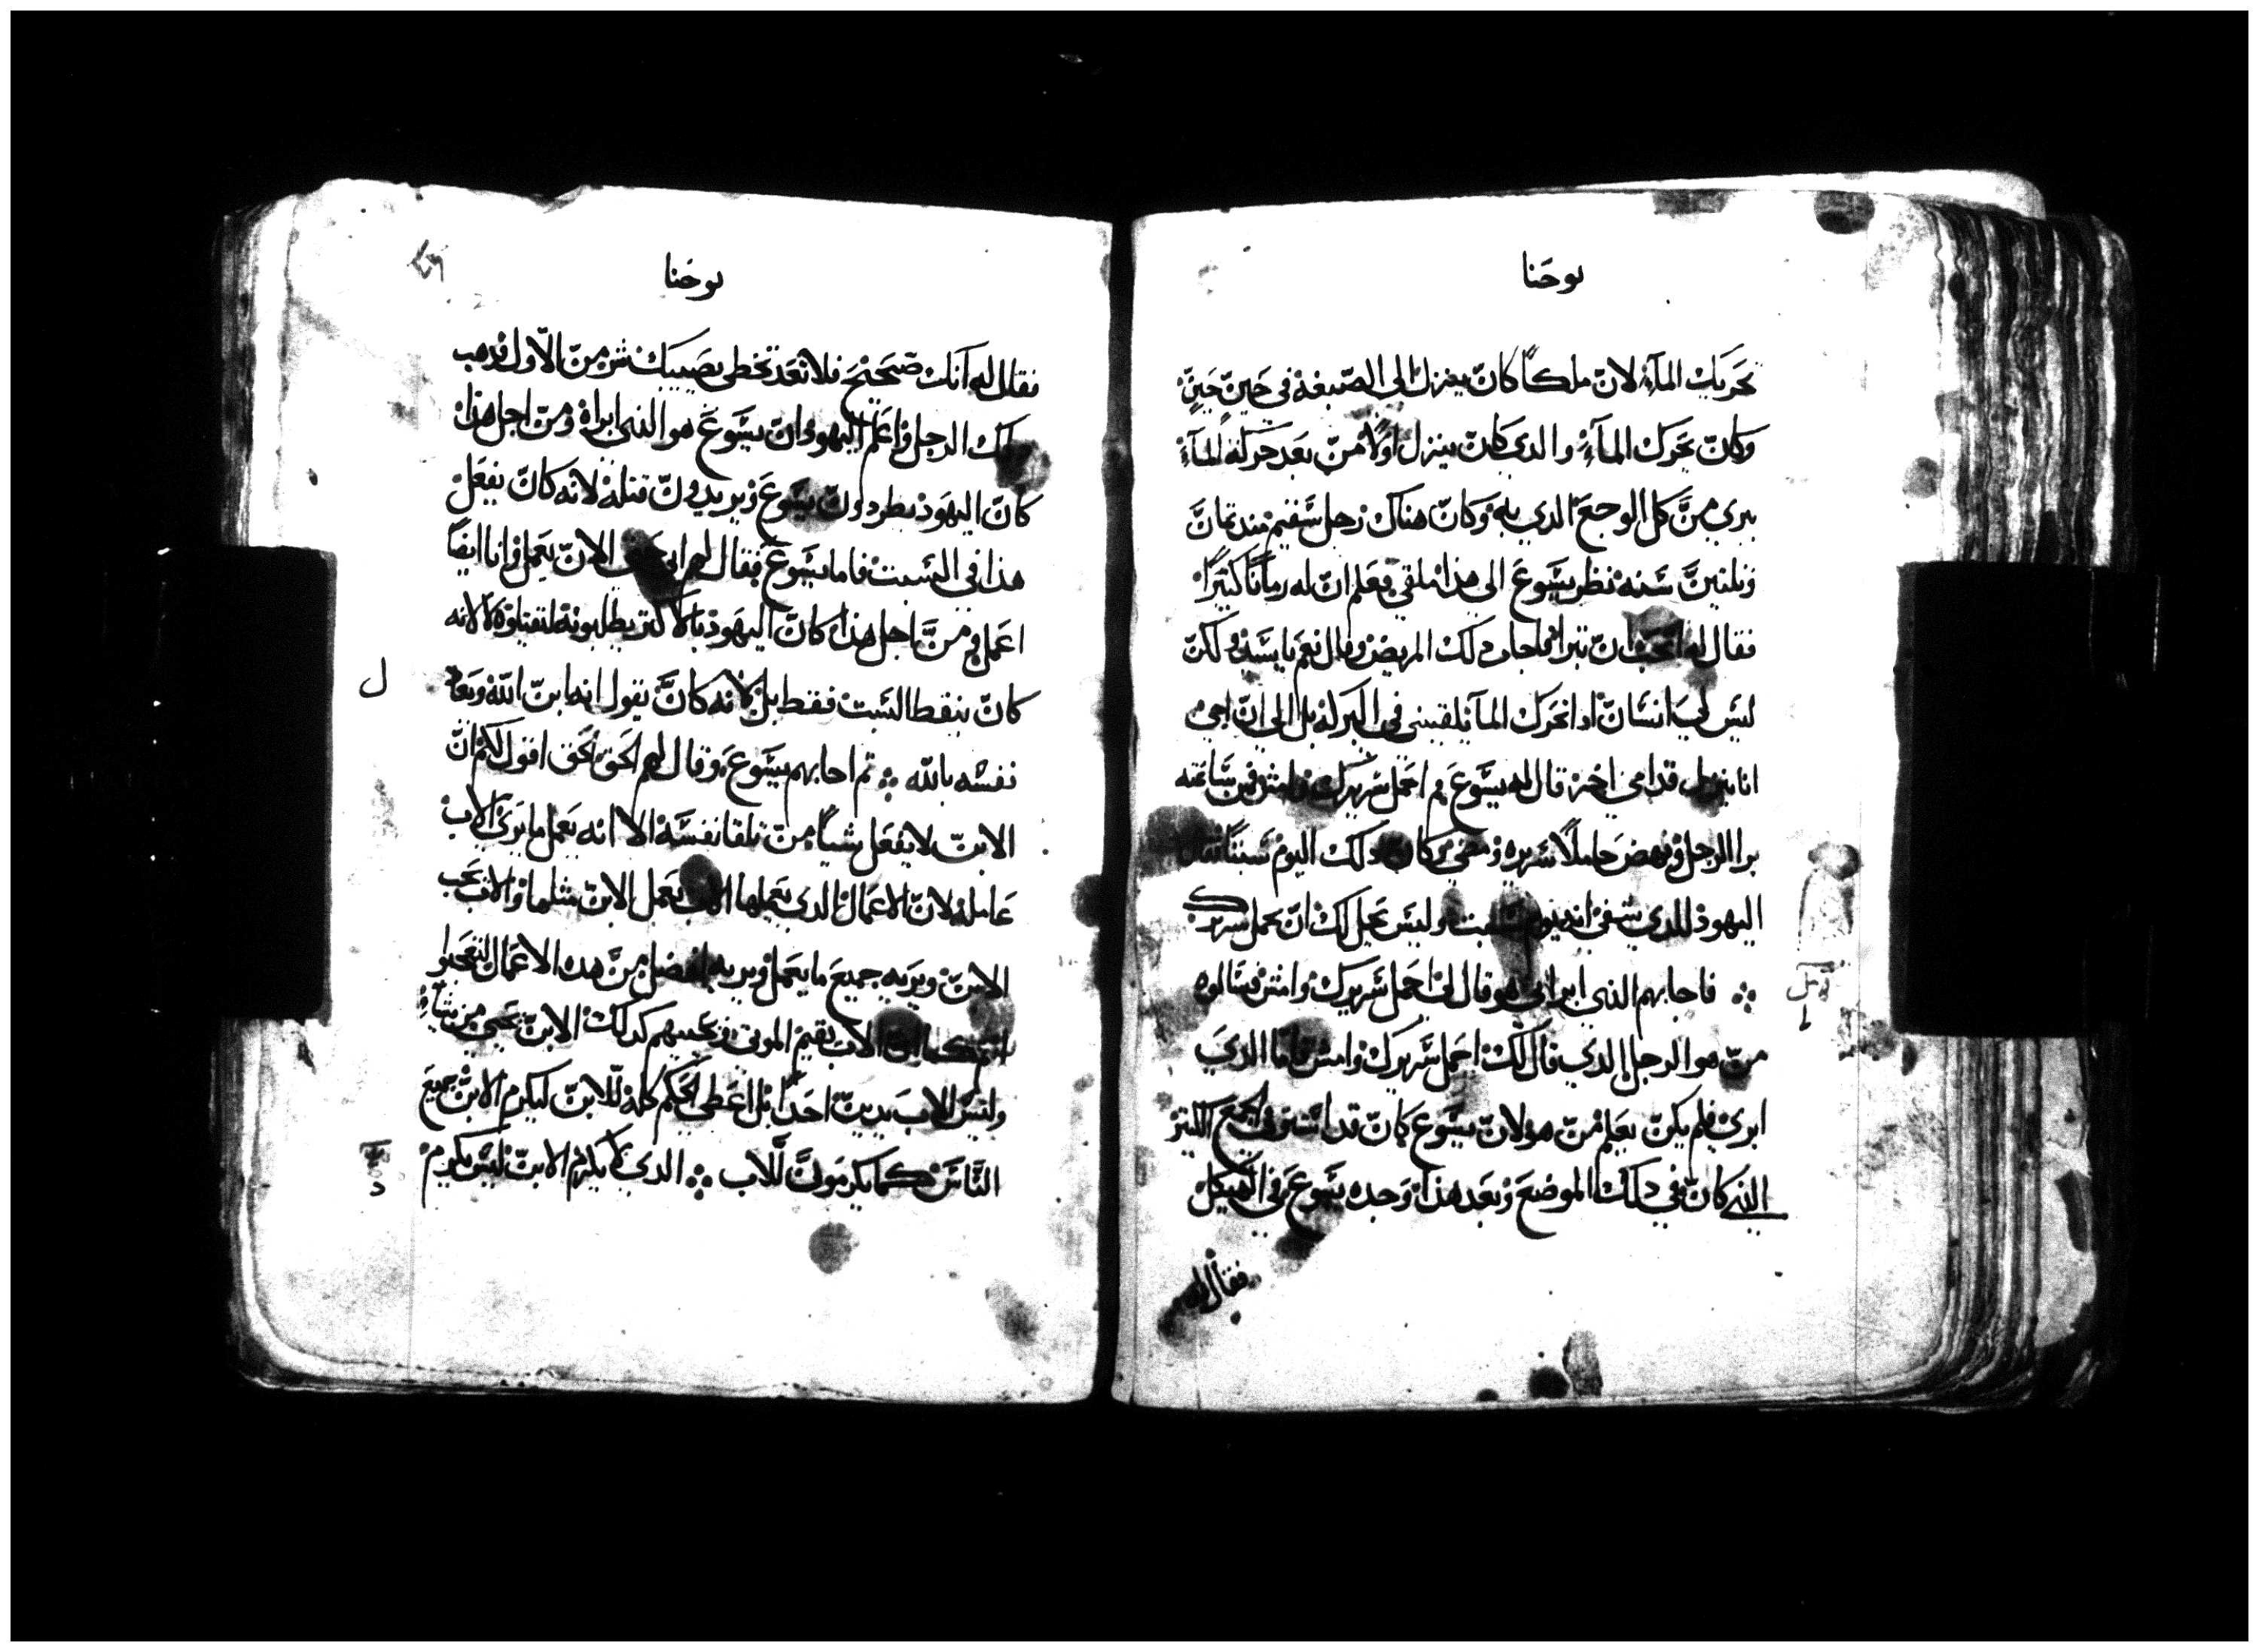 يوحنا
تحريك المآء لان ملاكاً كان ينزل الى الصبغة في حين حين
وكان تحرك المآء والدي كان ينزل اولاً من بعد حركة المآء
يبري من كل الوجع الدي به وكان هناك رجل سقيم مند تمان
وتلتين سنه نظر يسوع الى هذا ملقي فعلم ان له زماناً كثيراً
فقال له اتحب ان تبرا فاجاب دلك المريض وقال نعم يا سيد ولكن
ليس لي انسان ادا تحرك المآ يلقيني في البركة بل الى ان اجي
انا ينزل قدامي اخر قال له يسوع قم احمل سريرك وامش فمن ساعته
برا الرجل ونهض حاملاً سريره ومضي وكان دلك اليوم سبتاً فقال
اليهود للدي شفي انه يوم السبت وليس يحل لك ان تحمل سريرك
فاجابهم الذي ابراني هو قال لي احمل سريرك وامش فسالوه
من هو الرجل الدي قال لك احمل سريرك وامش فاما الدي
ابري فلم يكن يعلم من هو لان يسوع كان قد استتر في الجمع الكتير
الدي كان في دلك الموضع وبعد هذا وجده يسوع في الهيكل
فقال له
يوحنا
فقال له انك صححت فلا تعد تخطي يصيبك شر من الاول فدهب
دلك الرجل واعلم اليهود ان يسوع هو الذي ابراه ومن اجل هذا
كان اليهود يطردون يسوع ويريدون قتله لانه كان يفعل
هذا في السبت فاما يسوع فقال لهم ابي الان يعمل وانا ايضاً
اعمل فمن اجل هذا كان اليهود بالاكتر يطلبونه ليقتلوه لا لانه
كان ينقض السبت فقط بل لانه كان يقول انه ابن الله ويعادل
نفسه بالله ثم اجابهم يسوع وقال لهم الحق الحق اقول لكم ان
الابن لا يفعل شياً من تلقا نفسه الا انه يعمل ما يرى الاب
عامله لان الاعمال الدي يعملها الاب يعمل الابن مثلها والاب يحب
الابن ويريه جميع ما يعمل ويريه افضل من هده الاعمال لتعجبوا
انتم كما ان الاب يقيم الموتى ويحييهم كدلك الابن يحيي من يشآء
وليس الاب يدين احداً بل اعطى الحكم كله للابن ليكرم الابن جميع
الناس كما يكرمون للاب الدي لا يكرم الابن ليس يكرم
ل